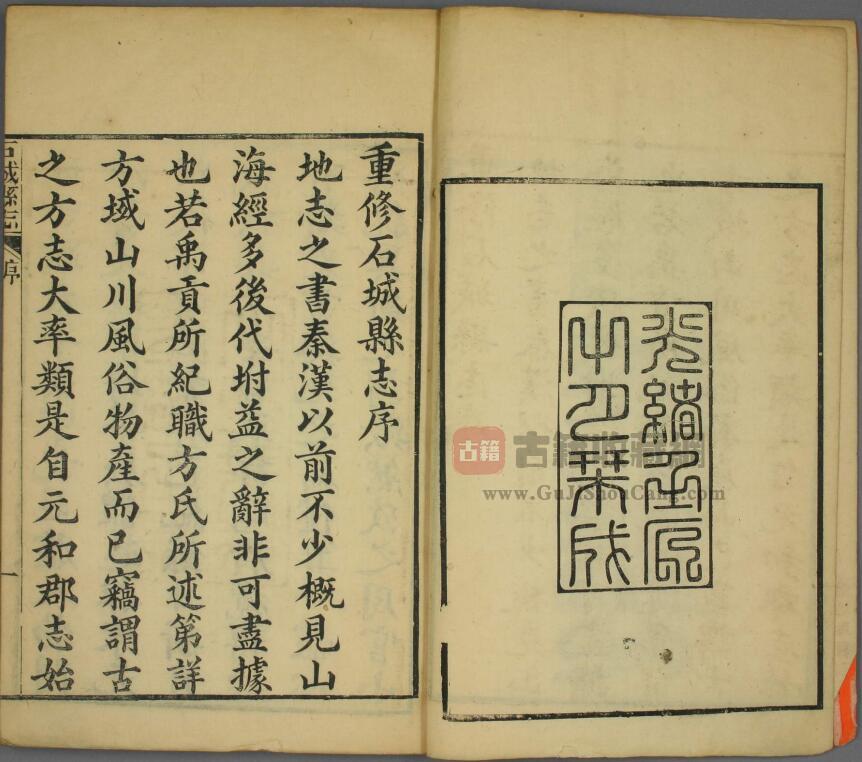 光緒壬辰
月栞成
古籍
古籍收藏網
www.GuJiShouCang.com
重修石城縣志序
地志之書秦漢以前不少概見山
海經多後代坿益之辭非可盡據
也若禹貢所紀職方氏所述第詳
方域山川風俗物產而已竊謂古
之方志大率類是自元和郡志始
石城縣志
序
一